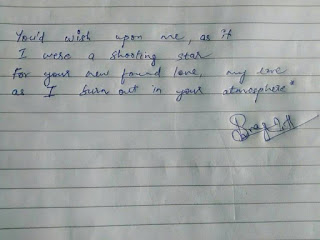 You'd wish upon me, as if
I were a shooting star
For your new found love, my love
as I burn out in your atmosphere"